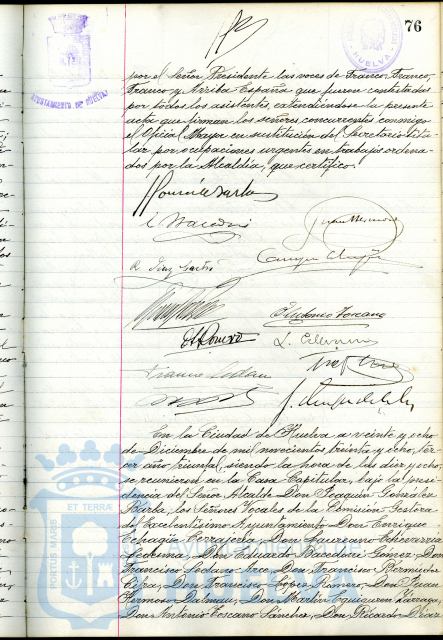 76
AYUNTAMIENTO DE HUELVA
HUELVA
por el Señor Presidente las voces de Franco, Franco,
Franco y Arriba España que fueron contestadas
por todos los asistentes, extendiéndose la presente
acta que firman los señores concurrentes conmigo
el Oficial Mayor en sustitución del Secretario titu
lar por ocupaciones urgentes en trabajos ordena-
dos por la Alcaldía, que certifico.
R. Díaz
Antonio Toscano
En la Ciudad de Huelva a veinte y ocho
de Diciembre de mil novecientos treinta y ocho, ter-
cer año triunfal, siendo la hora de las diez y ocho,
se reunieron en la Casa Capitular, bajo la presi-
dencia del Señor Alcalde Don Joaquín González
Barba, los Señores Vocales de la Comisión Gestora
del Excelentísimo Ayuntamiento Don Enrique
Echagüe Don Laureano Echevarría
Ledesma, Don Eduardo Bacedoni Gómez, Don
Francisco Sedano Arce, Don Francisco Bermúdez
Don Francisco López Romero, Don Juan
Hermoso Dalmau, Don Martín
Don Antonio Toscano Sánchez, Don Ricardo Díaz
PORTUS MARIS ET TERRÆ